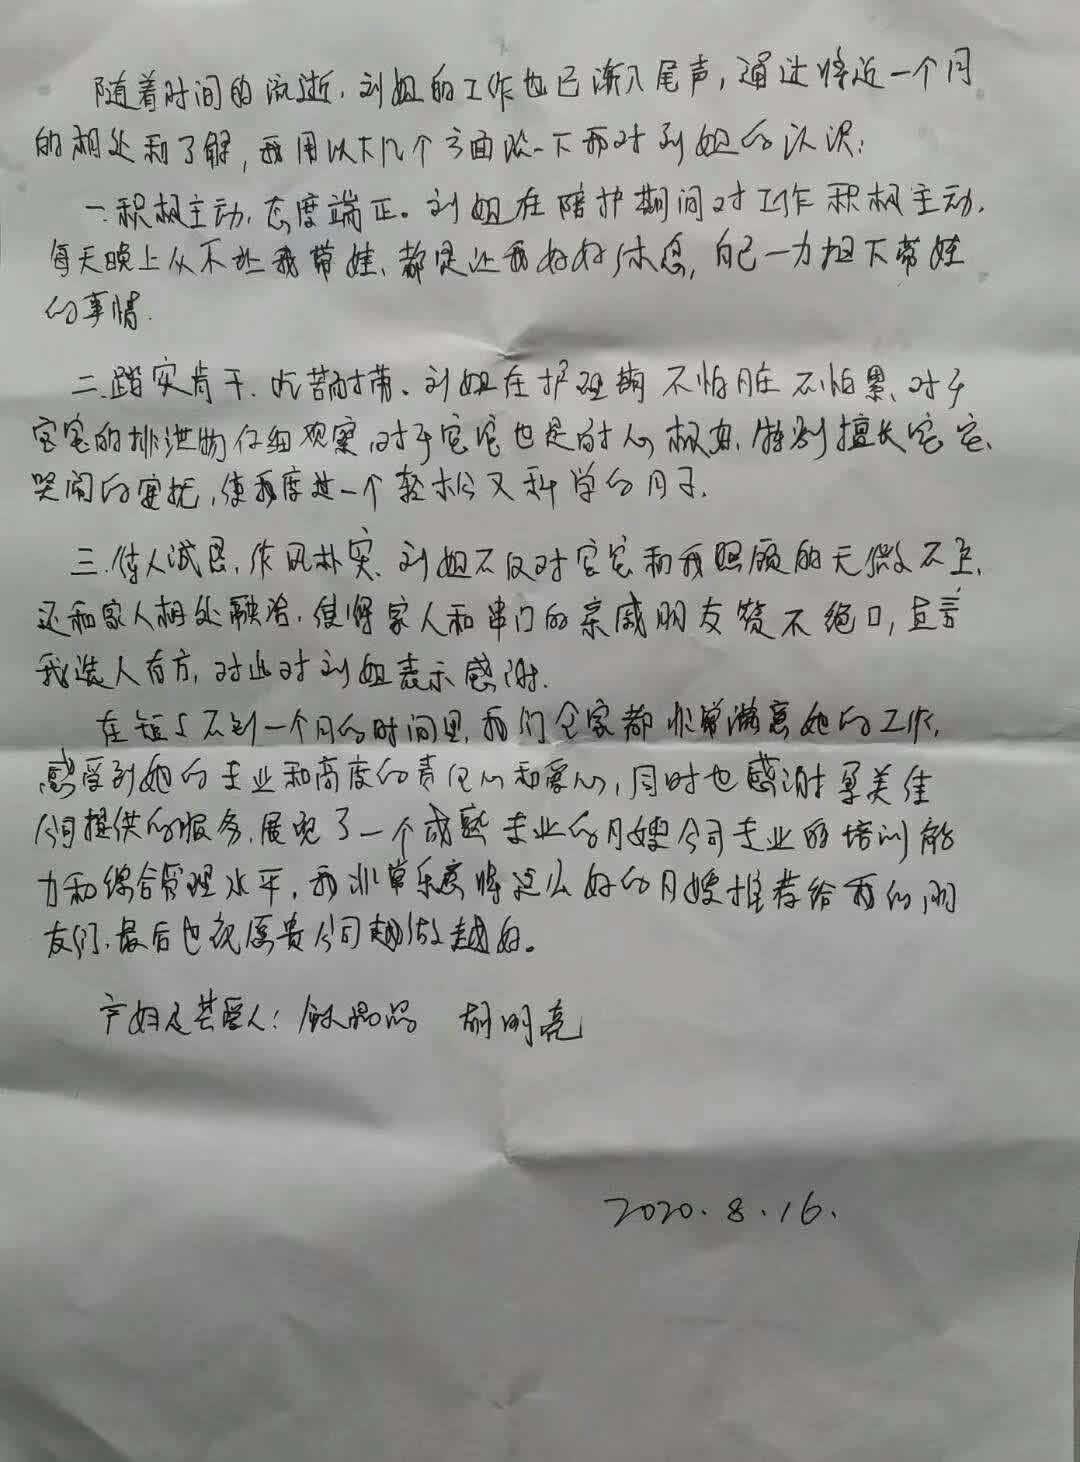 随着时间的流逝，刘姐的工作也已渐入尾声，通过将近一个月
的相处和了解，我用以下几个方面谈一下我对刘姐的认识：
一.积极主动，态度端正。刘姐在陪护期间对工作积极主动，
每天晚上从不让我带娃，都是让我好好休息，自己一力担下带娃
的事情.
二.踏实肯干，吃苦耐劳。刘姐在护理期不怕脏不怕累，对于
宝宝的排泄物仔细观察，对于宝宝也是耐心极好，特别擅长宝宝
哭闹的安抚，使我度过一个轻松又科学的月子.
三.待人诚恳，作风朴实，刘姐不仅对宝宝和我照顾的无微不至，
还和家人相处融洽，使得家人和串门的亲戚朋友赞不绝口，直言
我选人有方，对此对刘姐表示感谢.
在短短不到一个月的时间里，我们全家都非常满意她的工作，
感受到她的专业和高度的责任心和爱心，同时也感谢美佳
公司提供的服务，展现了一个成熟专业的月嫂公司专业的培训能
力和综合管理水平，我非常乐意将这么好的月嫂推荐给我的朋
友们，最后也祝愿贵公司越做越好。
产妇及其爱人： 胡明亮
2020.8.16.